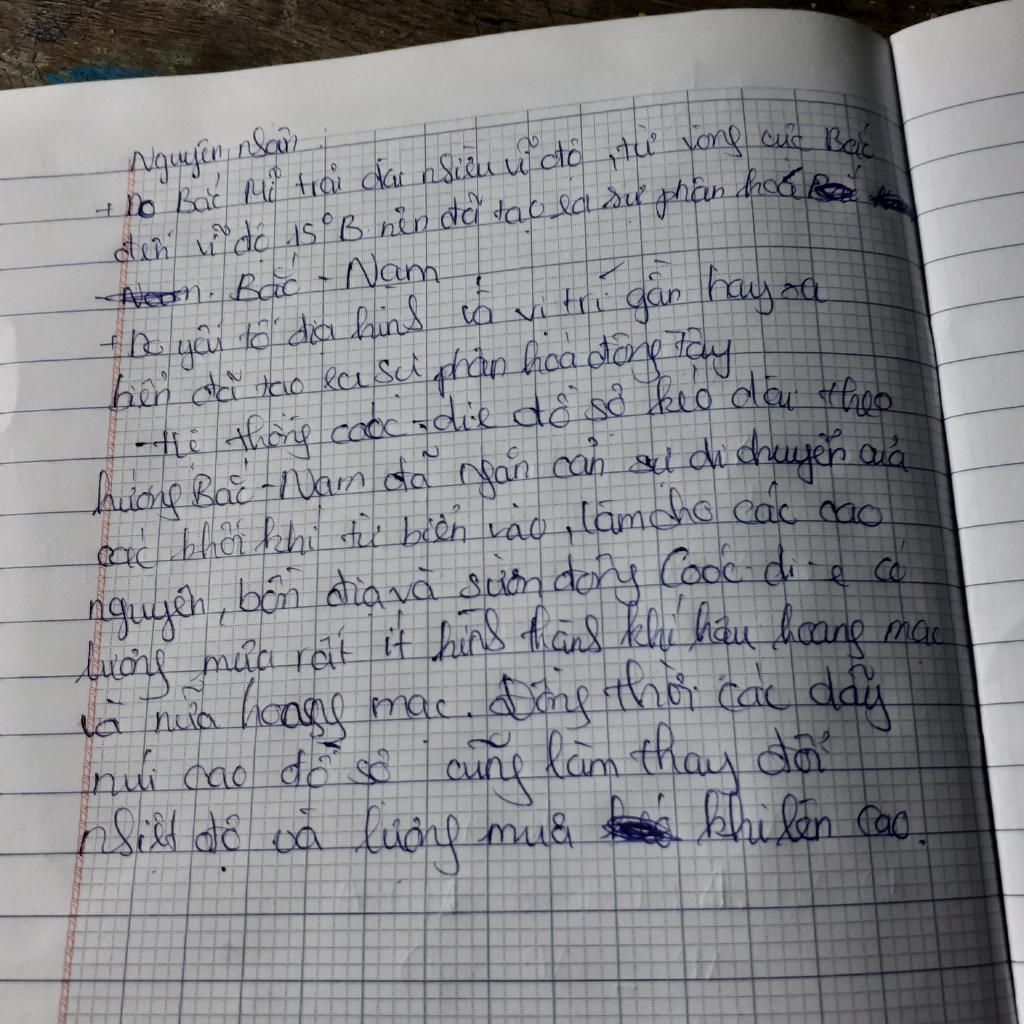 Nguyên nhân :
+ Do Bắc Mĩ trải dài nhiều vĩ độ, từ vòng cực Bắc
đến vĩ độ 15°B nên đã tạo ra sự phân hoá
Bắc - Nam
+ Do yếu tố địa hình và vị trí gần hay xa
biển đã tạo ra sự phân hoá đông Tây
- Hệ thống cooc-đi-e đồ sộ kéo dài theo
hướng Bắc - Nam đã ngăn cản sự di chuyển của
các khối khí từ biển vào, làm cho các cao
nguyên, bồn địa và sườn đông Cooc-đi-e có
lượng mưa rất ít hình thành khí hậu hoang mạc
và nửa hoang mạc. Đồng thời các dãy
núi cao đồ sộ cũng làm thay đổi
nhiệt độ và lượng mưa khi lên cao.